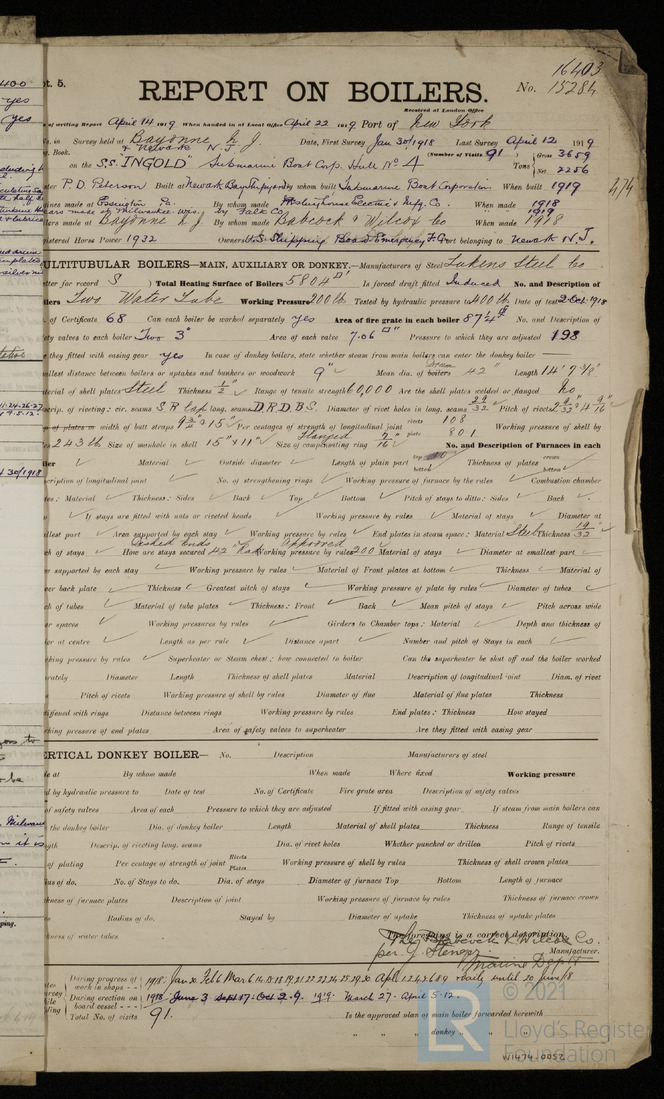 16403
pt. 5.
REPORT ON BOILERS.
No. 15284
Received at London Office
of writing Report April 14 1919 When handed in at Local Office April 22 1919 Port of New York
No. in Survey held at Bayonne N.J. & Newark N.J. Date, First Survey Jan 30/1918 Last Survey April 12 1919
Book.
(Number of Visits 91) Gross 3659
on the S.S. "INGOLD" Submarine Boat Corp. Hull No. 4 Tons Net 2256
P. D. Peterson Built at Newark Bay Shipyard By whom built Submarine Boat Corporation When built 1919
474
made at Essington Pa. By whom made Westinghouse Electric & Mfg. Co. When made 1918
Gears made at Milwaukee Wis. by Falk Co 1919
made at Bayonne N J By whom made Babcock & Wilcox Co When made 1918
Registered Horse Power 1932 Owners U.S. Shipping Board Emergency F.C. Port belonging to Newark N.J.
MULTITUBULAR BOILERS—MAIN, AUXILIARY OR DONKEY.—Manufacturers of Steel Lukens Steel Co
Letter for record S ) Total Heating Surface of Boilers 5804 □' Is forced draft fitted Induced No. and Description of
Boilers Two Water Tube Working Pressure 200 lb Tested by hydraulic pressure to 400 lb Date of test 2 Oct. 1918
of Certificate 68 Can each boiler be worked separately yes Area of fire grate in each boiler 87¼ No. and Description of
safety valves to each boiler Two 3" Area of each valve 7.06 □" Pressure to which they are adjusted 198
they fitted with easing gear yes In case of donkey boilers, state whether steam from main boilers can enter the donkey boiler —
Smallest distance between boilers or uptakes and bunkers or woodwork 9" Mean dia. of boilers Drum 42" Length 14' 7
Material of shell plates Steel Thickness ½" Range of tensile strength 60,000 Are the shell plates welded or flanged No
Descrip. of riveting: cir. seams S R Lap long. seams D.R.D.B.S. Diameter of rivet holes in long. seams Pitch of rivets
width of butt straps 9½ × 15 Per centages of strength of longitudinal joint rivets 108 plate 80.1 Working pressure of shell by
243 lb Size of manhole in shell 15" × 11" Size of compensating ring Flanged 7/16" No. and Description of Furnaces in each
boiler Material Outside diameter Length of plain part top bottom Thickness of plates crown bottom
Description of longitudinal joint No. of strengthening rings Working pressure of furnace by the rules Combustion chamber
plates: Material Thickness: Sides Back Top Bottom Pitch of stays to ditto: Sides Back
If stays are fitted with nuts or riveted heads Working pressure by rules Material of stays Diameter at
smallest part Area supported by each stay Working pressure by rules End plates in steam space: Material Steel Thickness 19/32"
Pitch of stays Dished Ends How are stays secured 42" Rad Working pressure by rules Approved 200 Material of stays Diameter at smallest part
supported by each stay Working pressure by rules Material of Front plates at bottom Thickness Material of
Lower back plate Thickness Greatest pitch of stays Working pressure of plate by rules Diameter of tubes
Pitch of tubes Material of tube plates Thickness: Front Back Mean pitch of stays Pitch across wide
water spaces Working pressures by rules Girders to Chamber tops: Material Depth and thickness of
girder at centre Length as per rule Distance apart Number and pitch of Stays in each
Working pressure by rules Superheater or Steam chest; how connected to boiler Can the superheater be shut off and the boiler worked
separately Diameter Length Thickness of shell plates Material Description of longitudinal joint Diam. of rivet
Pitch of rivets Working pressure of shell by rules Diameter of flue Material of flue plates Thickness
stiffened with rings Distance between rings Working pressure by rules End plates: Thickness How stayed
Working pressure of end plates Area of safety valves to superheater Are they fitted with easing gear
VERTICAL DONKEY BOILER— No. Description Manufacturers of steel
Made at By whom made When made Where fixed Working pressure
tested by hydraulic pressure to Date of test No. of Certificate Fire grate area Description of safety valves
of safety valves Area of each Pressure to which they are adjusted If fitted with easing gear If steam from main boilers can
the donkey boiler Dia. of donkey boiler Length Material of shell plates Thickness Range of tensile
strength Descrip. of riveting long. seams Dia. of rivet holes Whether punched or drilled Pitch of rivets
of plating Per centage of strength of joint Rivets Plates Working pressure of shell by rules Thickness of shell crown plates
Radius of do. No. of Stays to do. Dia. of stays Diameter of furnace Top Bottom Length of furnace
Thickness of furnace plates Description of joint Working pressure of furnace by rules Thickness of furnace crown
plates Radius of do. Stayed by Diameter of uptake Thickness of uptake plates
Thickness of water tubes The foregoing is a correct description,
The Babcock & Wilcox Co.
per Manufacturer.
Marine Dept
During progress of work in shops - - 1918. Jan 30 Feb 6 Mar 6 daily until 20 June/18
During erection on board vessel - - - 1918 June 3 Sept 17. Oct 2.9. 1919. March 27. April 5.12.
Total No. of visits 91. Is the approved plan of main boiler forwarded herewith
" " " donkey " " "
© 2021
Lloyd's Register
Foundation
LR
W1474-0052